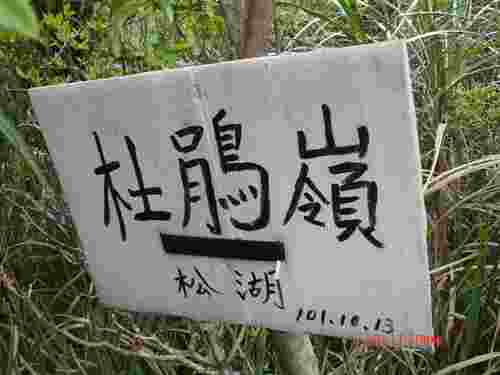 杜鵑嶺
松湖
101.10.13